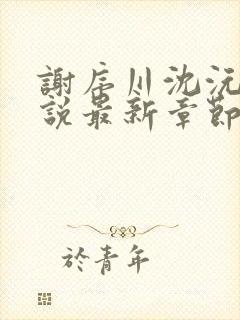 謝辰川沈沅
說最新章節
於青年